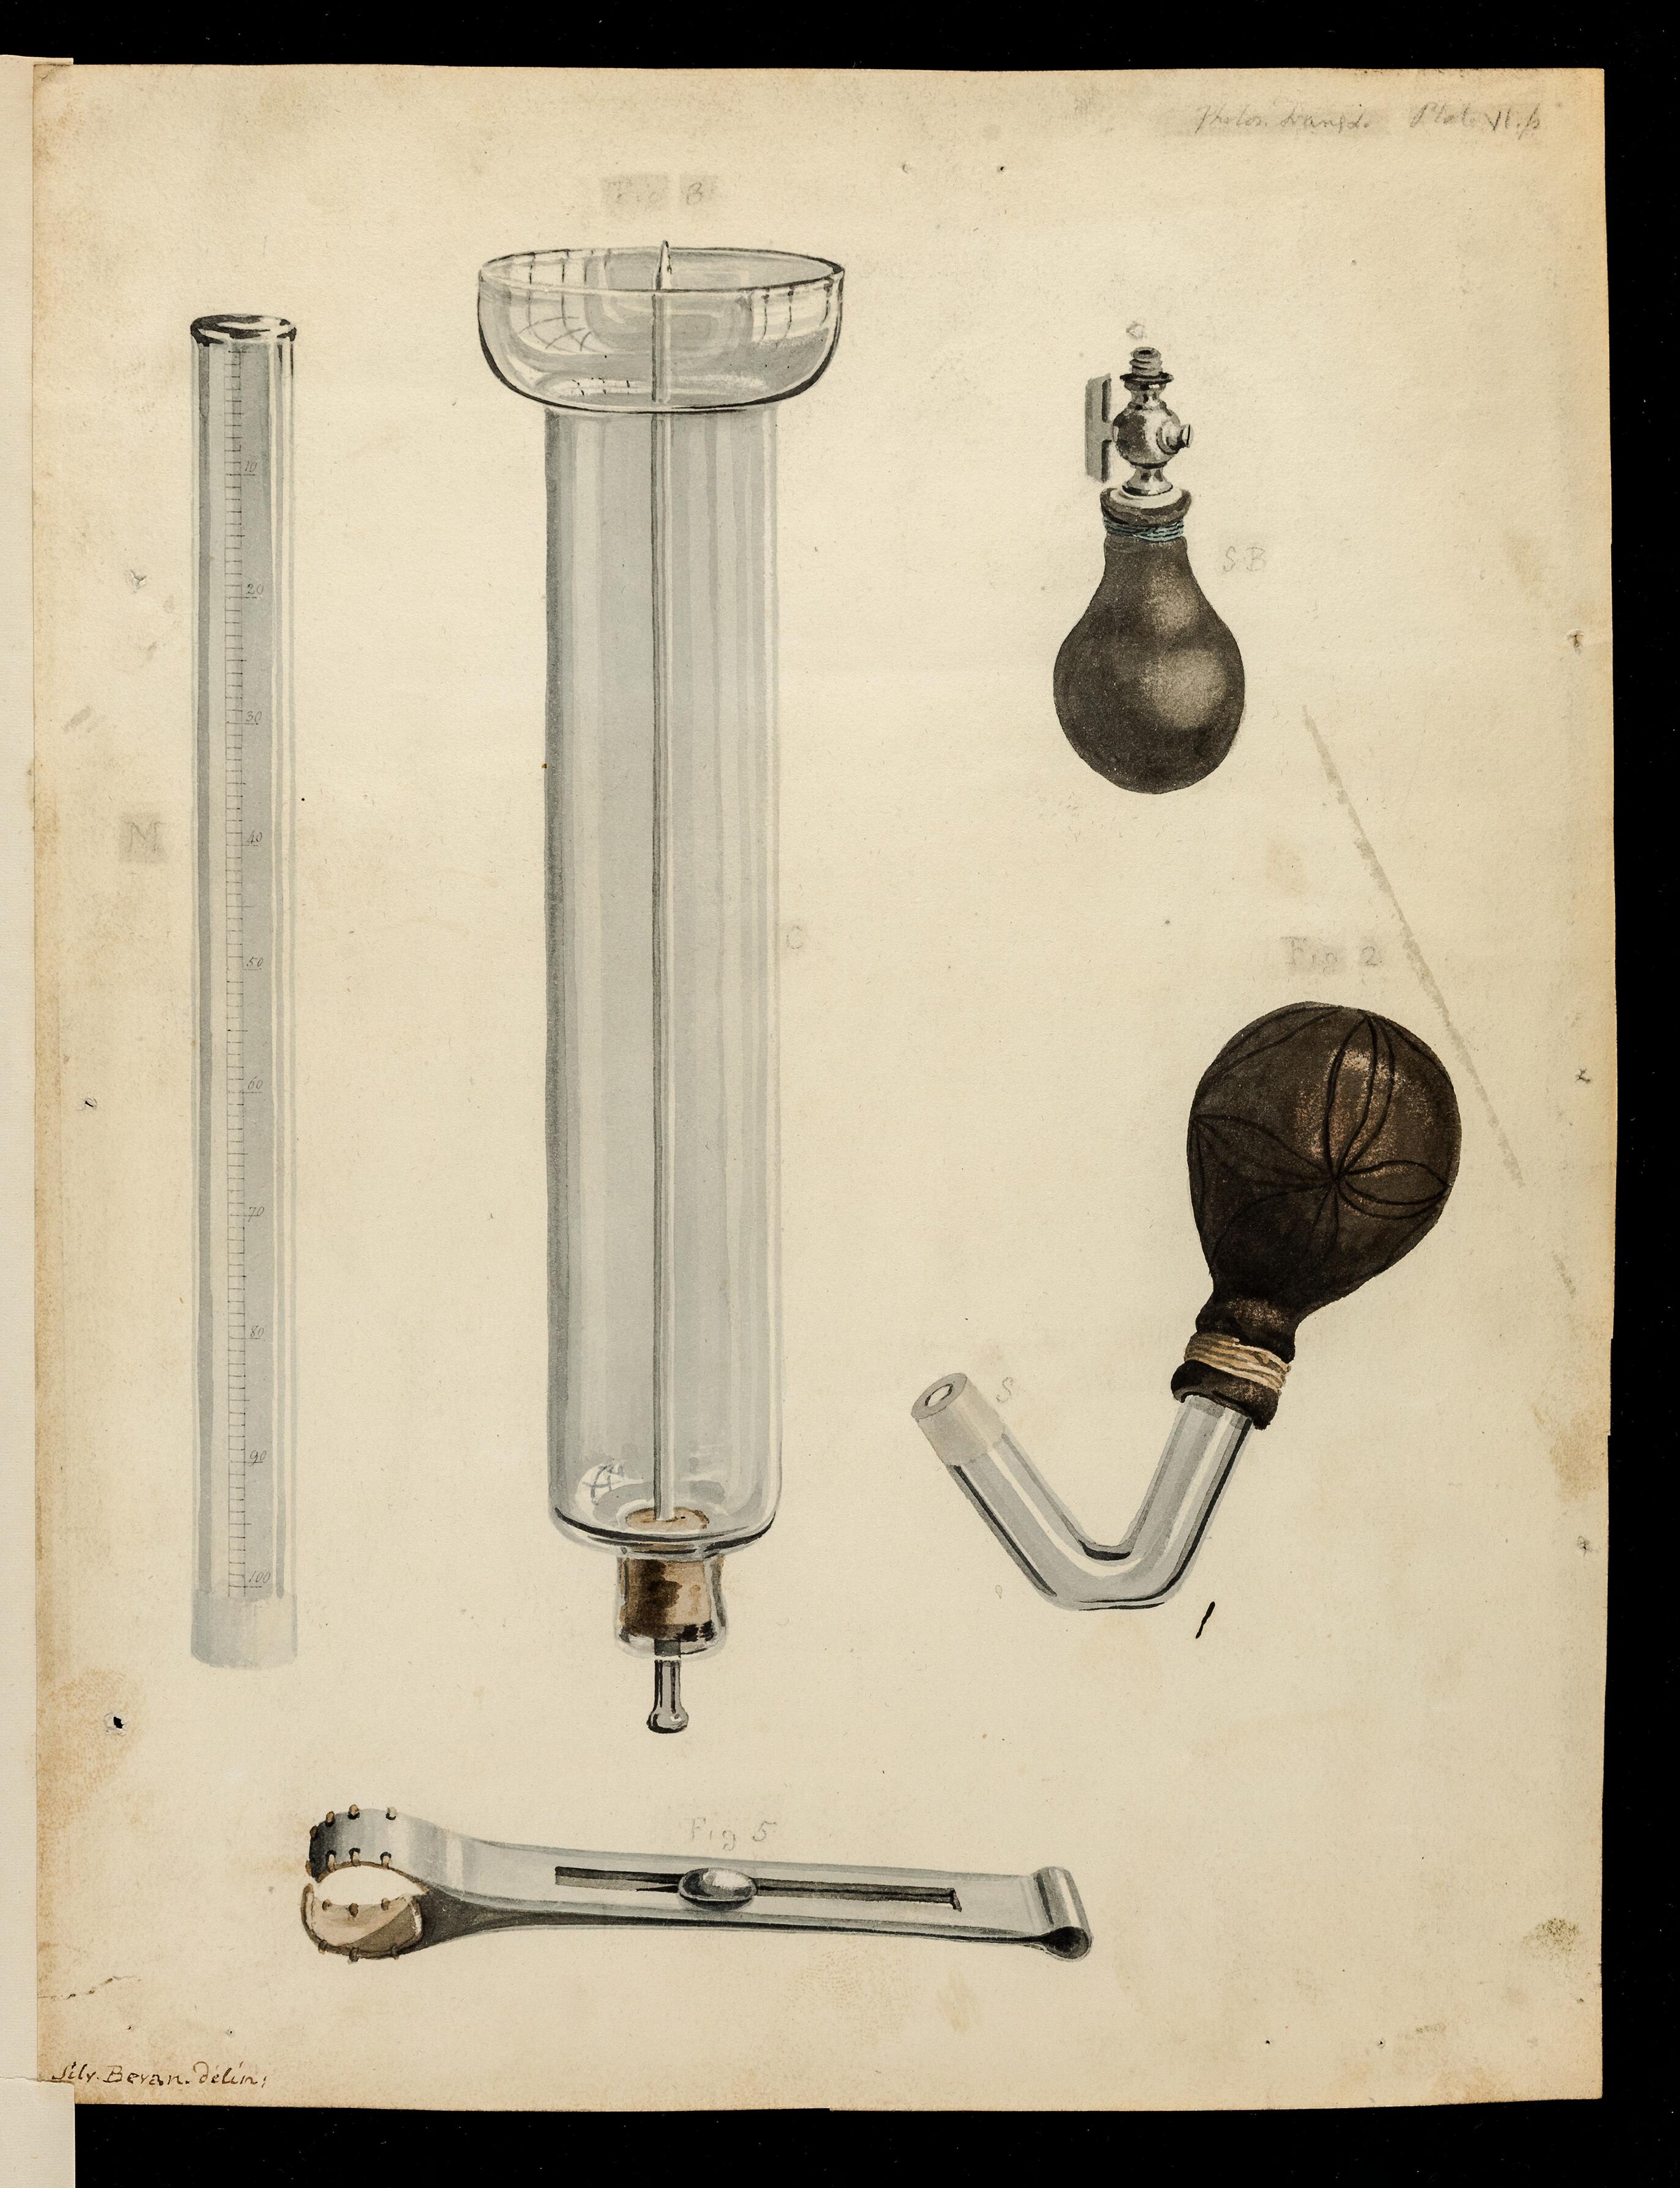 Philos. Transd. Plate VI. p
Fig 3
10
20
30
40
50
60
70
80
90
100
M
C
S B
Fig 2
S
Fig 5
Silv. Bevan. delin;